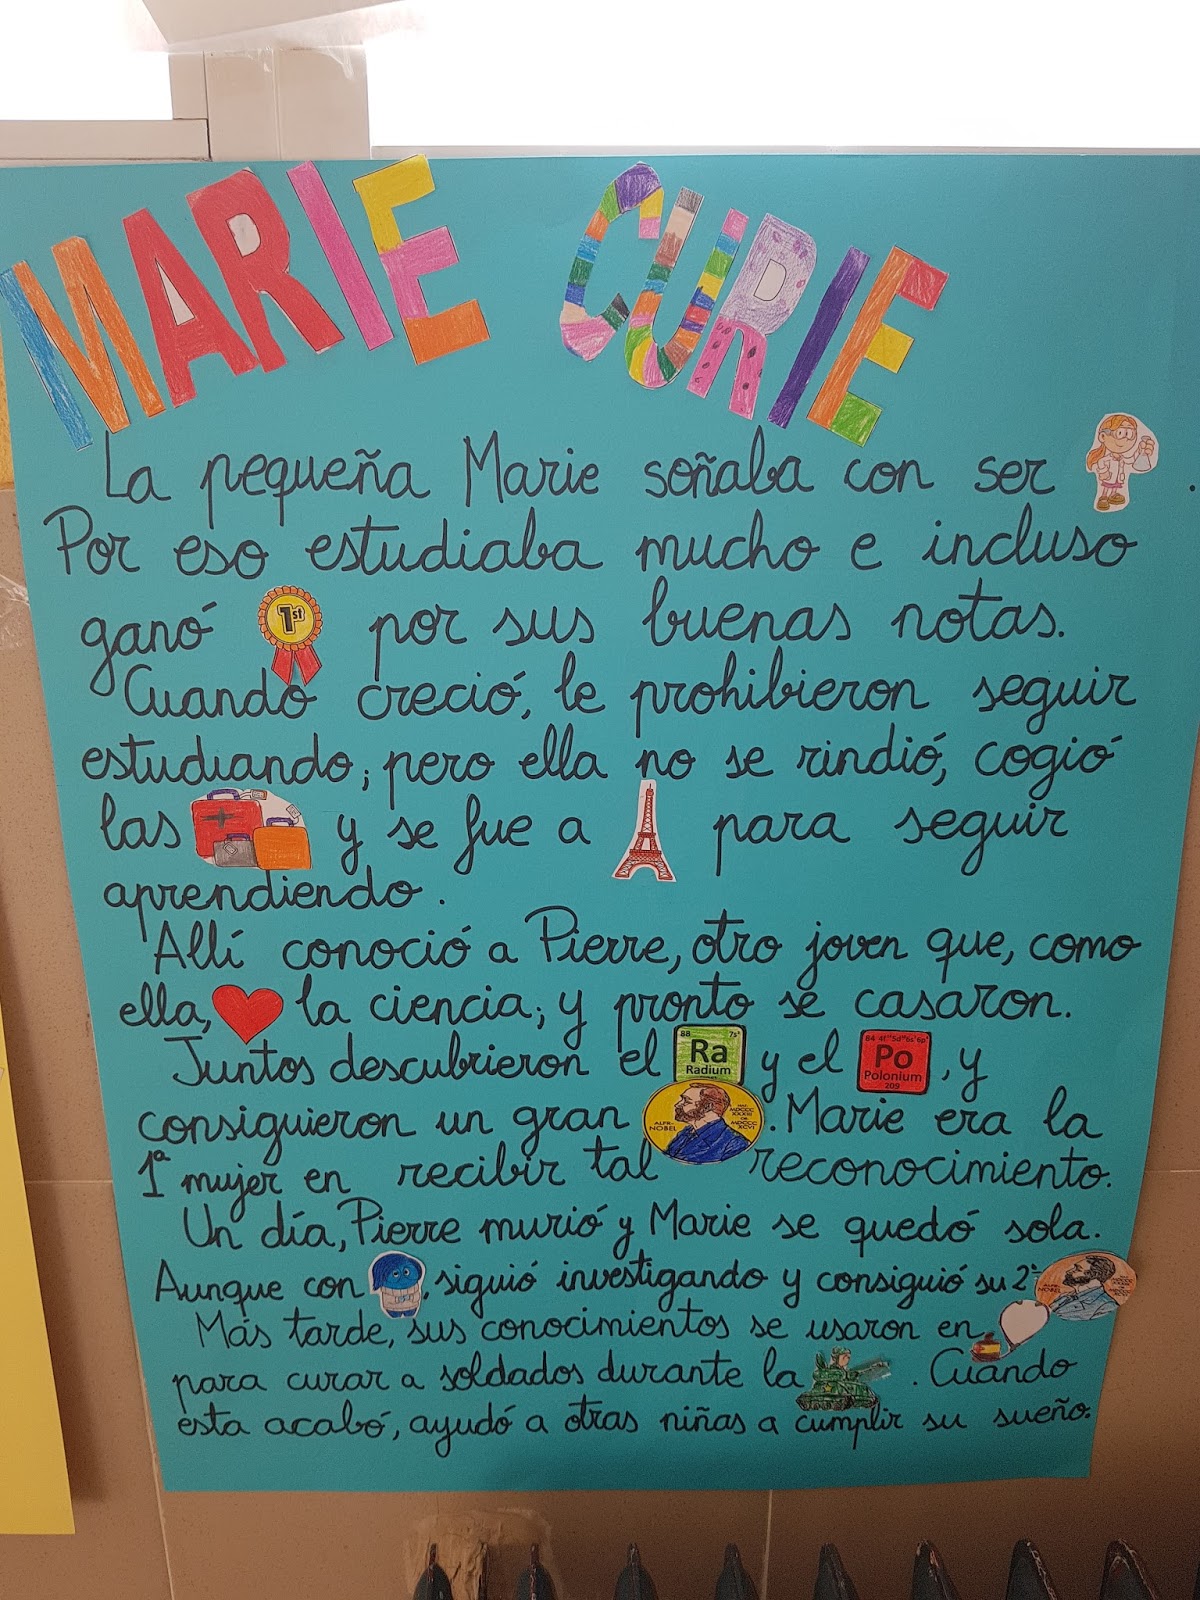 MARIE CURIE
La pequeña Marie soñaba con ser .
Por eso estudiaba mucho e incluso
ganó 1st por sus buenas notas.
Cuando creció, le prohibieron seguir
estudiando, pero ella no se rindió, cogió
las y se fue a para seguir
aprendiendo.
Allí conoció a Pierre, otro joven que, como
ella, la ciencia; y pronto se casaron.
Juntos descubrieron el 88 7s² Ra Radium y el 84 Po Polonium 209, y
consiguieron un gran ALFR· NOBEL NAT. MDCCC XXXIII OB. MDCCC XCVI. Marie era la
1ª mujer en recibir tal reconocimiento.
Un día, Pierre murió y Marie se quedó sola.
Aunque con , siguió investigando y consiguió su 2º
Más tarde, sus conocimientos se usaron en
para curar a soldados durante la . Cuando
esta acabó, ayudó a otras niñas a cumplir su sueño.